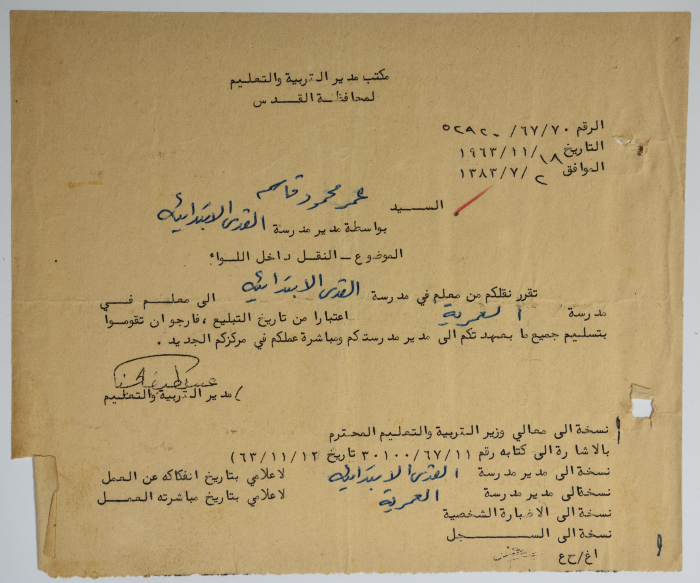 مكتب مدير التربية والتعليم
لمحافظة القدس
الرقم ٦٧/٧٠/ ٥٢٩٢٠
التاريخ ١٨/ ١٩٦٣/١١
الموافق ٢/ ١٣٨٣/٧
السيد عمر محمود قاسم
بواسطة مدير مدرسة القدس الابتدائية
الموضوع - النقل داخل اللواء
تقرر نقلكم من معلم في مدرسة القدس الابتدائية الى معلم في
مدرسة العمرية اعتبارا من تاريخ التبليغ ، فارجو ان تقوموا
بتسليم جميع ما بعهدتكم الى مدير مدرستكم ومباشرة عملكم في مركزكم الجديد .
/ مدير التربية والتعليم
نسخة الى معالي وزير التربية والتعليم المحترم
بالاشارة الى كتابه رقم ٣٠١٠٠/٦٧/١١ تاريخ ٦٣/١١/١٢)
نسخة الى مدير مدرسة القدس الابتدائية لاعلامي بتاريخ انفكاكه عن العمل
نسخةالى مدير مدرسة العمرية لاعلامي بتاريخ مباشرته العمل
نسخة الى الاضبارة الشخصية
نسخة الى السجل
اغ/ح ع